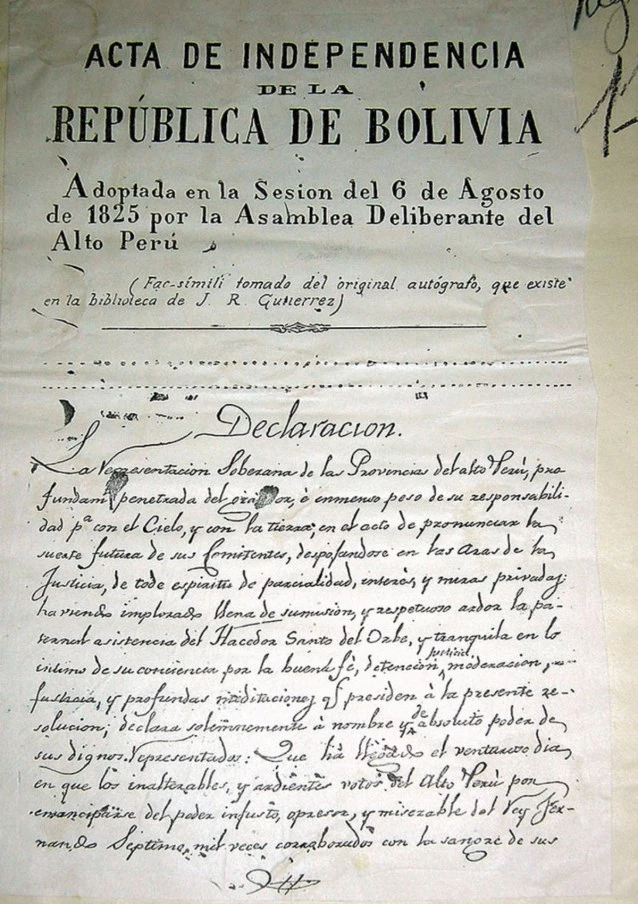 ACTA DE INDEPENDENCIA
DE LA
REPÚBLICA DE BOLIVIA
Adoptada en la Sesion del 6 de Agosto
de 1825 por la Asamblea Deliberante del
Alto Perú
(Fac-símili tomado del original autógrafo, que existe
en la biblioteca de J. R. Gutierrez)
Declaracion.
La Representacion Soberana de las Provincias del alto Perú, pro
fundam penetrada del é inmenso peso de su responsabili-
dad pª con el Cielo, y con la tierra, en el acto de pronunciar la
suerte futura de sus Comitentes, despojandose en las Aras de la
Justicia, de todo espiritu de parcialidad, interes, y miras privadas;
haviendo implorado llena de sumision, y respetuoso ardor la pa-
ternal asistencia del Hacedor Santo del Orbe, y tranquila en lo
intimo de su conciencia por la buena fé, detencion, justicia, moderacion,
justicia, y profundas meditaciones qe presiden à la presente re-
solucion; declara solemnemente à nombre y de absoluto poder de
sus dignos Representados: Que há llegado el venturoso dia
en que los inalterables, y ardientes votos del Alto Perú por
emanciparse del poder injusto, opresor, y miserable del Rey Fer-
nando Septimo, mil veces corroborados con la sangre de sus